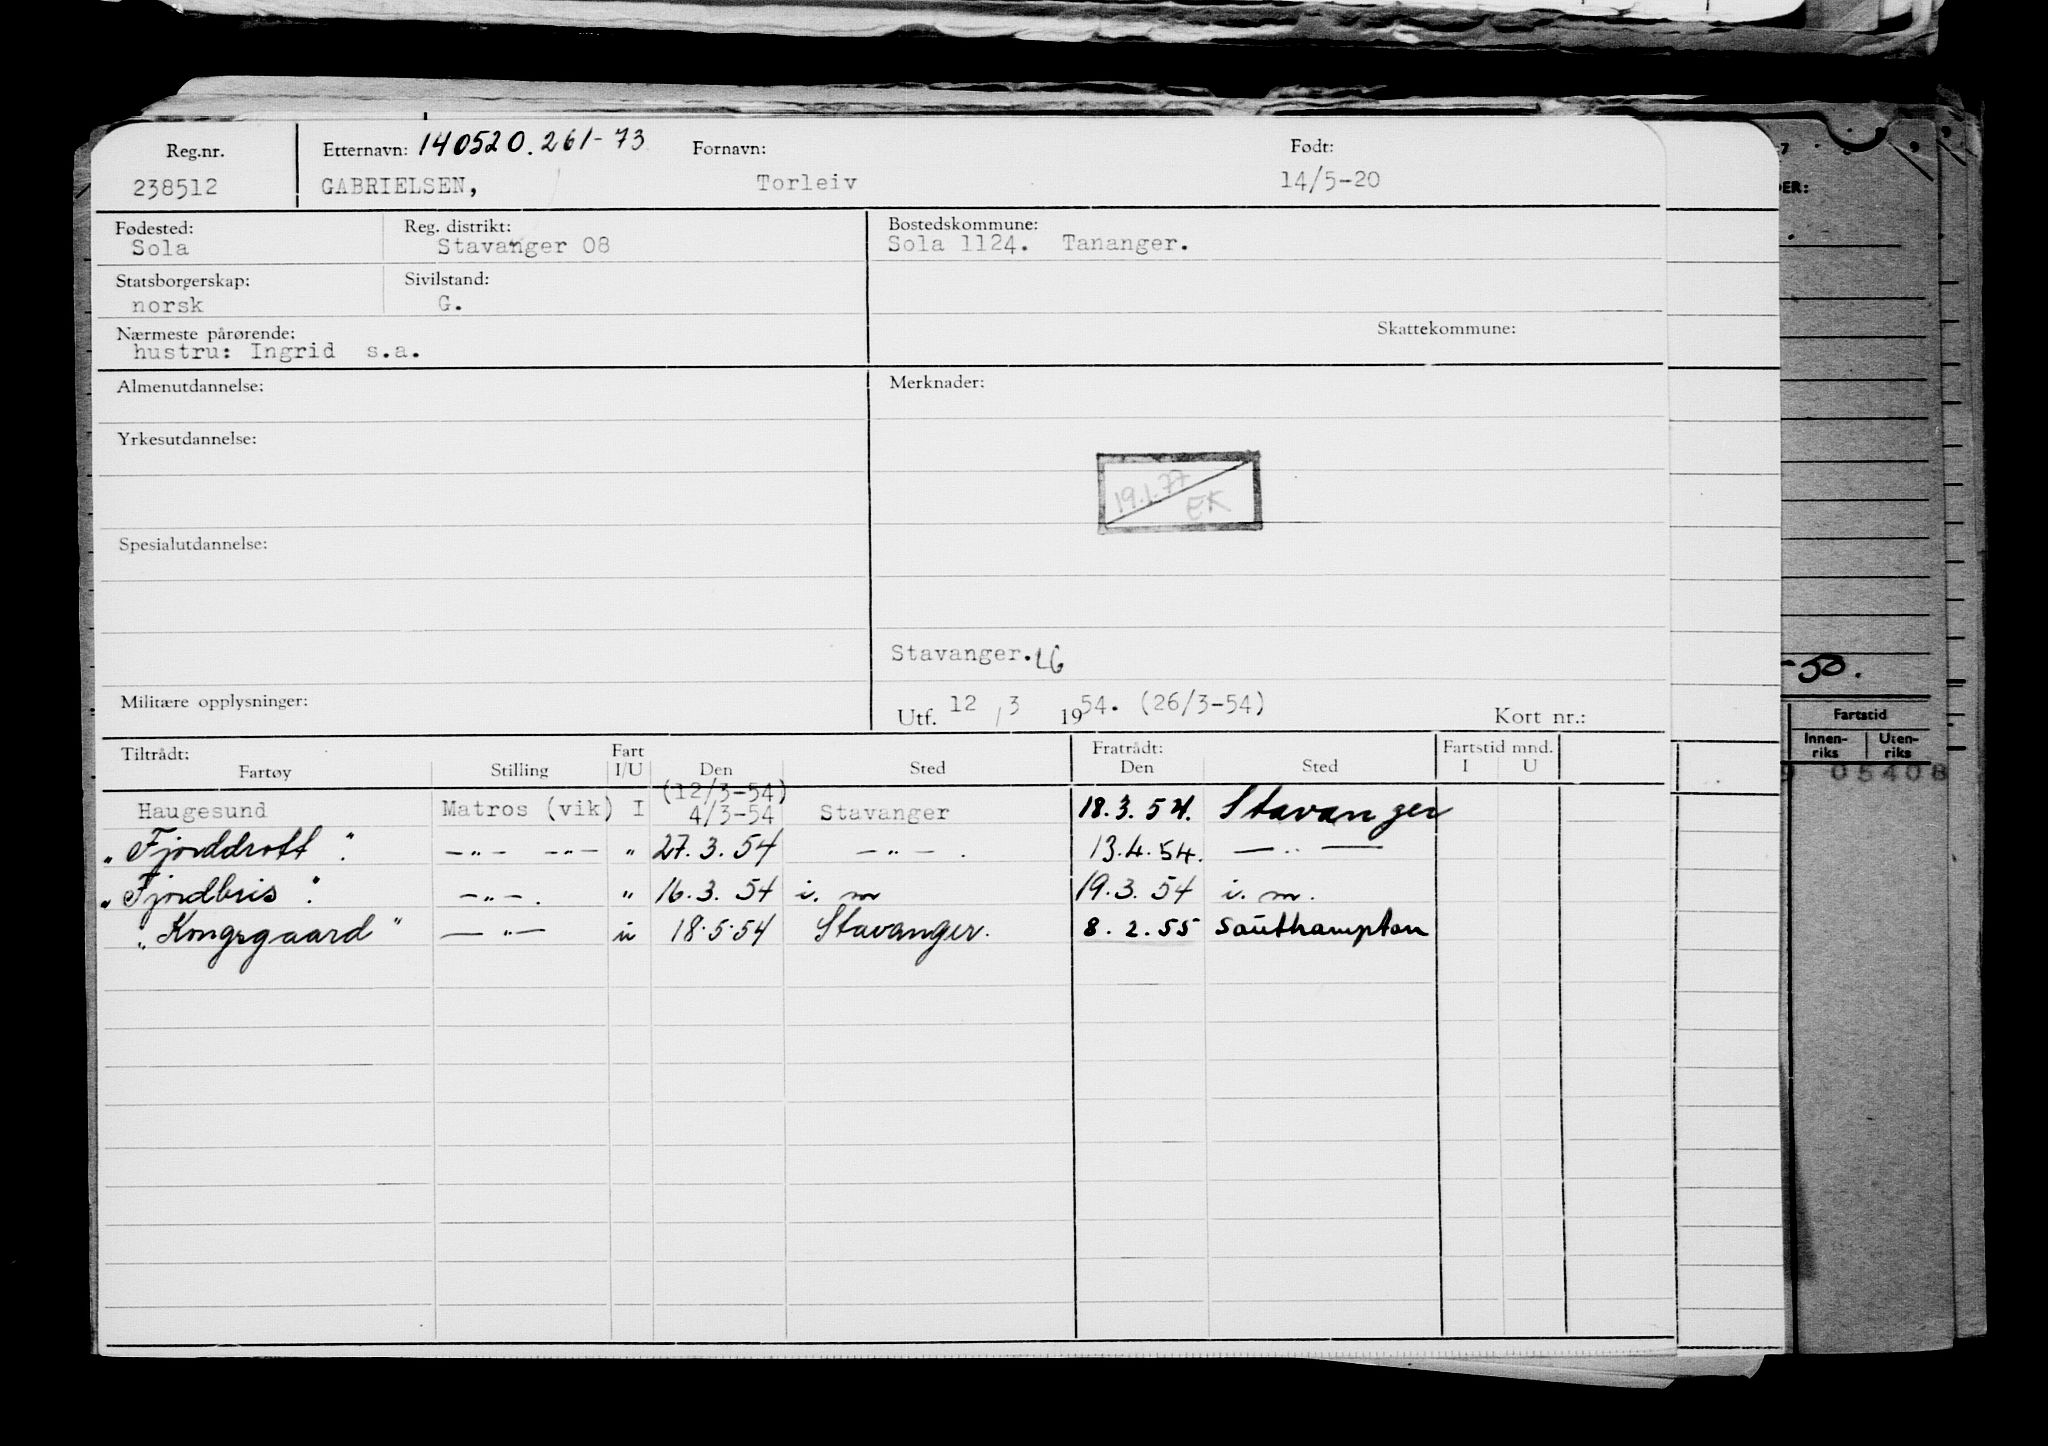 Reg.nr. Etternavn: 140520.261-73 Fornavn: Født:
238512 GABRIELSEN, Torleiv 14/5-20
Fødested: Reg. distrikt: Bostedskommune:
Sola Stavanger 08 Sola 1124. Tananger.
Statsborgerskap: Sivilstand:
norsk G.
Nærmeste pårørende: Skattekommune:
hustru: Ingrid s.a.
Almenutdannelse: Merknader:
Yrkesutdannelse:
19.1.77
EK
Spesialutdannelse:
Stavanger. LG
Militære opplysninger: Utf. 12 / 3 1954. (26/3-54) Kort nr.:
Tiltrådt: Fart Fratrådt: Fartstid mnd.
Fartøy Stilling I/U Den Sted Den Sted I U
(12/3-54)
Haugesund Matros (vik) I 4/3-54 Stavanger 18.3.54. Stavanger
"Fjorddrott". —"— —"— " 27.3.54 —"—. 13.4.54. —"—
"Fjordbris". —"—. " 16.3.54 i. m 19.3.54 i. m.
"Kongsgaard" —"— u 18.5.54 Stavanger. 8.2.55 Southampton
DER:
-50.
Fartstid
Innen-riks Uten-riks
05408